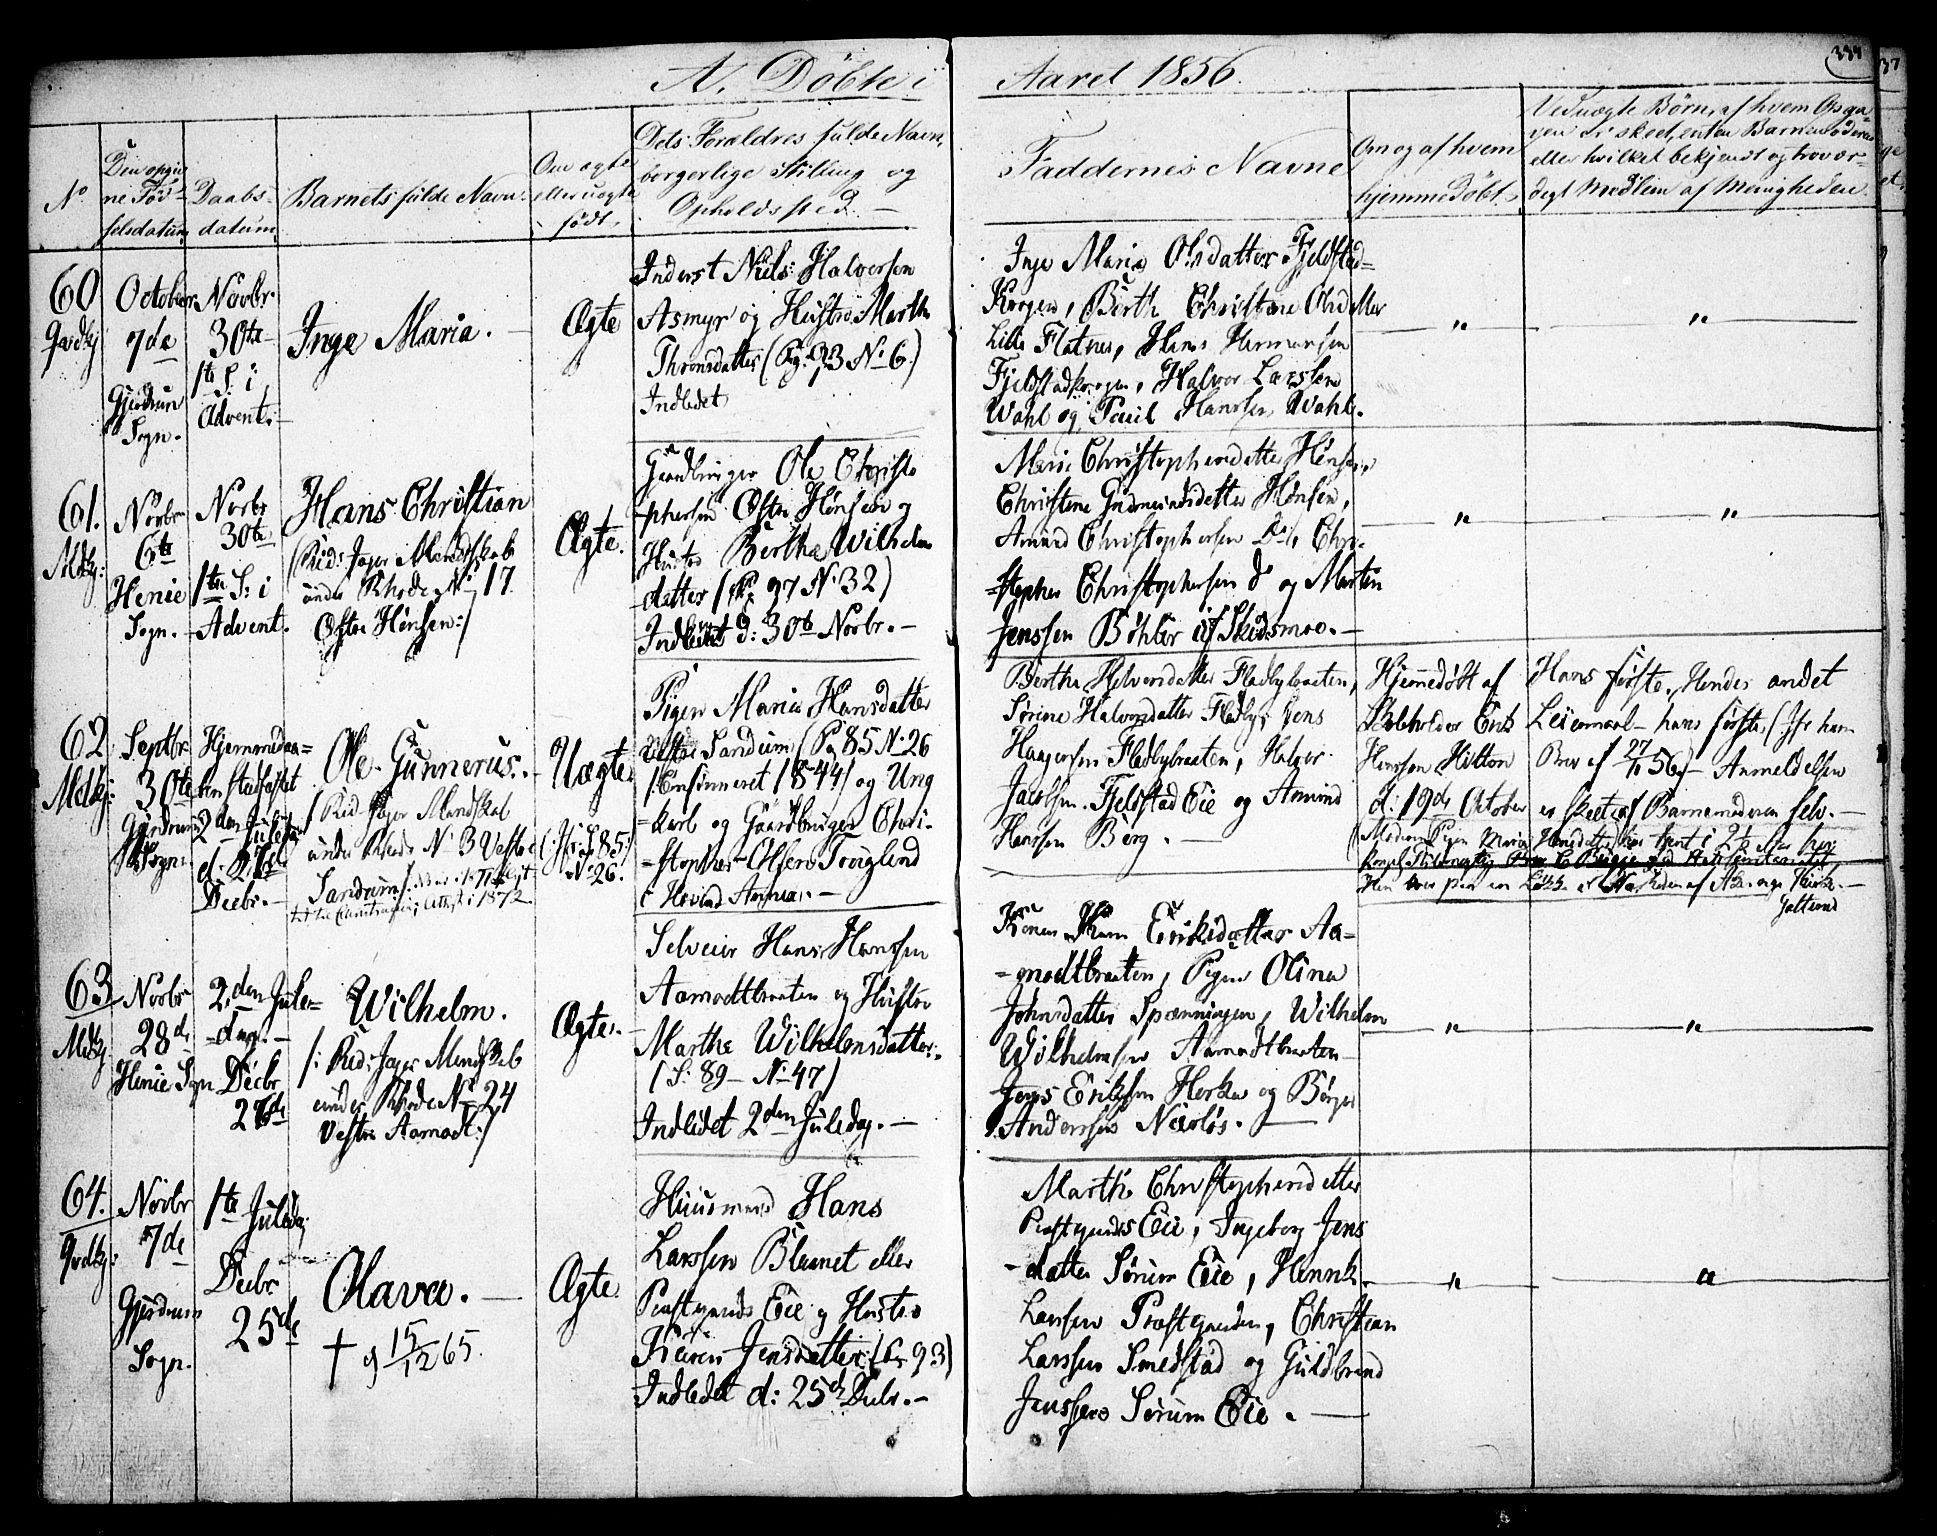 A. Döbte i Aaret 1856.
334
No
Den opgivne Fødselsdatum
Daabsdatum
Barnets fulde Navn.
Om ægte eller uægte født.
Dets Forældres fulde Navn, borgerlige Stilling og Opholdssted.
Faddernes Navne
Om og af hvem hjemmedöbt.
Ved uægte Børn, af hvem Opgaven er skeet, enten Barnemoderen eller hvilket bekjendt og troværdigt Medlem af Menigheden.
60
October 7de
Gjerdrum Sogn.
Novbr. 30te
1te S. i Advent.
Inge Maria.
Ægte
Inderst Niels Halvorsen
Asmyr og Hustro Marthe
Thronsdatter (Pag. 93 No 6.)
Indledet
Inge Maria Olsdatter Fjeldstad=
Krogen, Berth Christine Olsdatter
Lille Flatner, Hans Hermansen
Fjeldstadkrogen, Halvor Larssen
Wahl og Paul Hanssen Wahl.
61.
Novbr 6te
Henie Sogn.
Novbr 30te
1te S: i Advent.
Hans Christian
(Rid: Jæger Mandskab
under Rhode No 17
Østre Hønsen:/
Ægte.
Gaardbruger Ole Christo
-phersen Østre Hønsen og
Hustro Berthe Wilhelms
-datter (Pg 97 No 32)
Indledt d: 30te Novbr. -
Marie Christophersdatter Hønsen,
Christine Gudmundsdatter Hønsen,
Amund Christophersen Do, Chri-
=stopher Christophersen do og Morten
Jenssen Böhler af Skedsmoe. -
62
Septbr 30te
Gjerdrums Sogn.
Hjemmedaa=
ben stadfæstet
2den Juledag
d. 26de
Decbr. -
Ole Gunnerus. -
/ Rid Jæger Mandskab
under Rhode No 3 Vestre
Sandum/.
Uægte.
(Jfr S 85
No 26.
Pigen Maria Hansdatter
Vestre Sandum (Pg 85 No 26
/: Confirmeret 1844/ og Ung
=karl og Gaardbruger Chri-
=stopher Olsen Fouglend
Berthe Halvorsdatter Fladbybraaten,
Sørine Halvorsdatter Fladby, Jens
Haagensen Fladbybraaten, Halvor
Jacobsen Fjeldstad Eie og Amund
Hanssen Berg. -
Hjemmedöbt af
Hanssen Hilton
d: 19de October
Hans første, Hendes andet
Leiermaal - hans første, (Jfr hans
Brev af 27/11 56) - Anmeldelsen
er skeet af Barnemoderen selv. -
63
Novbr 28de
Henie Sogn
2den Jule=
=dag. -
Decbr 26de
Wilhelm.
/: Rid: Jæger Mandskab
under Rhode No 24
Vestre Aamodt:/
Ægte. -
Selveier Hans Hanssen
Aamodtbraaten og Hustro
Marthe Wilhelmsdatter.
/ S: 89 - No 47/
Indledet 2den Juledag. -
Konen Karen Eriksdatter Aa=
=modtbraaten, Pigen Olina
Johnsdatter Spænningen, Wilhelm
Wilhelmsen Aamodtbraaten
Jens Erikssen Herker og Børger
Anderssen Næsløs. -
64.
Novbr 7de
Gjerdrum Sogn.
1te Juledag
Decbr 25de
Olava. -
† 9 15/12 65.
Ægte.
Huusmand Hans
Larssen Blumet eller
Præstgaards Eie og Hustro
Karen Jensdatter (S 93)
Indledet d: 25de Decbr. -
Marthe Christophersdatter
Præstgaards Eie, Ingeborg Jens
-datter Sørum Eie, Henrik
Larssen Præstgaarden, Christian
Larssen Smedstad og Guldbrand
Jenssen Sørum Eie. -